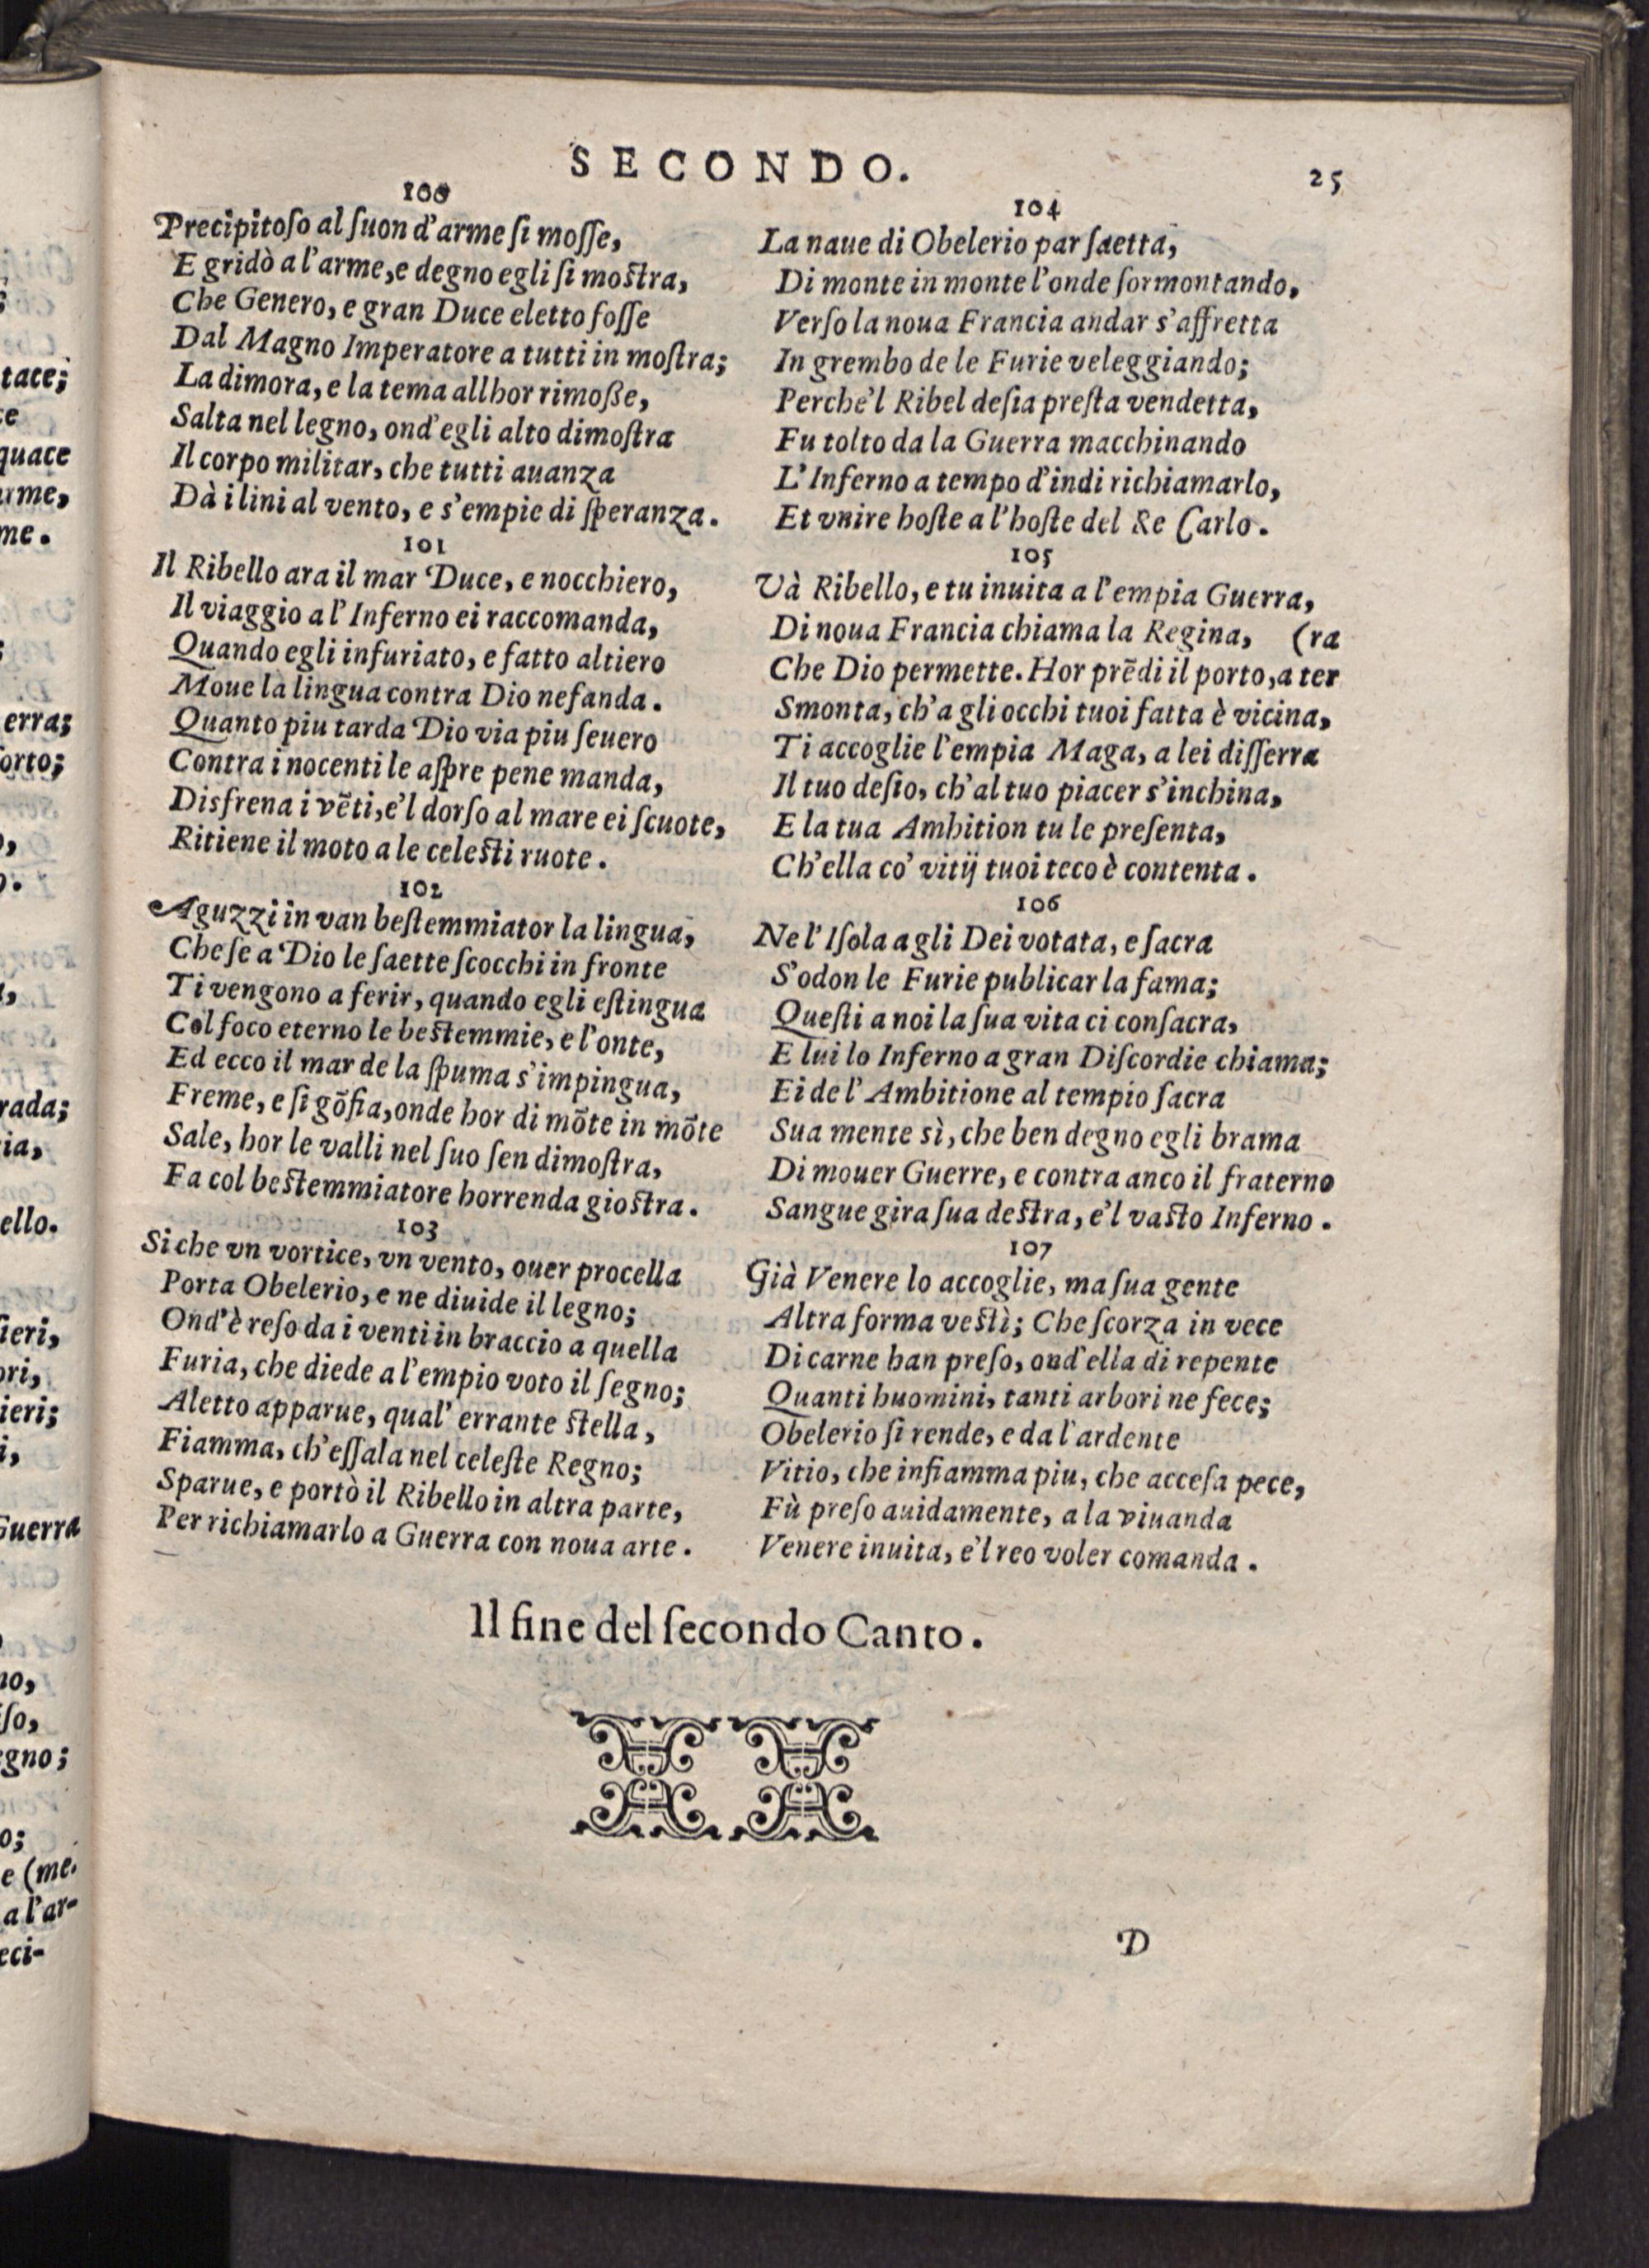 SECONDO.
25
100
Precipitoſo al ſuon d'arme ſi moſſe,
E gridò a l'arme, e degno egli ſi moſtra,
Che Genero, e gran Duce eletto foſſe
Dal Magno Imperatore a tutti in moſtra;
La dimora, e la tema allhor rimoße,
Salta nel legno, ond'egli alto dimoſtra
Il corpo militar, che tutti auanza
Dà i lini al vento, e s'empie di ſperanza.
101
Il Ribello ara il mar Duce, e nocchiero,
Il viaggio a l'Inferno ei raccomanda,
Quando egli infuriato, e fatto altiero
Moue la lingua contra Dio nefanda.
Quanto piu tarda Dio via piu ſeuero
Contra i nocenti le aſpre pene manda,
Disfrena i vēti, e'l dorſo al mare ei ſcuote,
Ritiene il moto a le celeſti ruote.
102
Aguzzi in van beſtemmiator la lingua,
Che ſe a Dio le ſaette ſcocchi in fronte
Ti vengono a ferir, quando egli eſtingua
Col foco eterno le beſtemmie, e l'onte,
Ed ecco il mar de la ſpuma s'impingua,
Freme, e ſi gōfia, onde hor di mōte in mōte
Sale, hor le valli nel ſuo ſen dimoſtra,
Fa col beſtemmiatore horrenda gioſtra.
103
Si che vn vortice, vn vento, ouer procella
Porta Obelerio, e ne diuide il legno;
Ond'è reſo da i venti in braccio a quella
Furia, che diede a l'empio voto il ſegno;
Aletto apparue, qual' errante ſtella,
Fiamma, ch'eſſala nel celeſte Regno;
Sparue, e portò il Ribello in altra parte,
Per richiamarlo a Guerra con noua arte.
104
La naue di Obelerio par ſaetta,
Di monte in monte l'onde ſormontando,
Verſo la noua Francia andar s'affretta
In grembo de le Furie veleggiando;
Perche'l Ribel deſia preſta vendetta,
Fu tolto da la Guerra macchinando
L'Inferno a tempo d'indi richiamarlo,
Et vnire hoſte a l'hoſte del Re Carlo.
105
Và Ribello, e tu inuita a l'empia Guerra,
Di noua Francia chiama la Regina, (ra
Che Dio permette. Hor prēdi il porto, a ter
Smonta, ch'a gli occhi tuoi fatta è vicina,
Ti accoglie l'empia Maga, a lei diſſerra
Il tuo deſio, ch'al tuo piacer s'inchina,
E la tua Ambition tu le preſenta,
Ch'ella co' vitij tuoi teco è contenta.
106
Ne l'Iſola a gli Dei votata, e ſacra
S'odon le Furie publicar la fama;
Queſti a noi la ſua vita ci conſacra,
E lui lo Inferno a gran Diſcordie chiama;
Ei de l'Ambitione al tempio ſacra
Sua mente sì, che ben degno egli brama
Di mouer Guerre, e contra anco il fraterno
Sangue gira ſua deſtra, e'l vaſto Inferno.
107
Già Venere lo accoglie, ma ſua gente
Altra forma veſtì; Che ſcorza in vece
Di carne han preſo, ond'ella di repente
Quanti huomini, tanti arbori ne fece;
Obelerio ſi rende, e da l'ardente
Vitio, che infiamma piu, che acceſa pece,
Fù preſo auidamente, a la viuanda
Venere inuita, e'l reo voler comanda.
Il fine del ſecondo Canto.
D
tace;
quace
me.
erra;
orto;
rada;
ello.
ieri;
Guerra
egno;
e (me.
a l'ar-
eci-